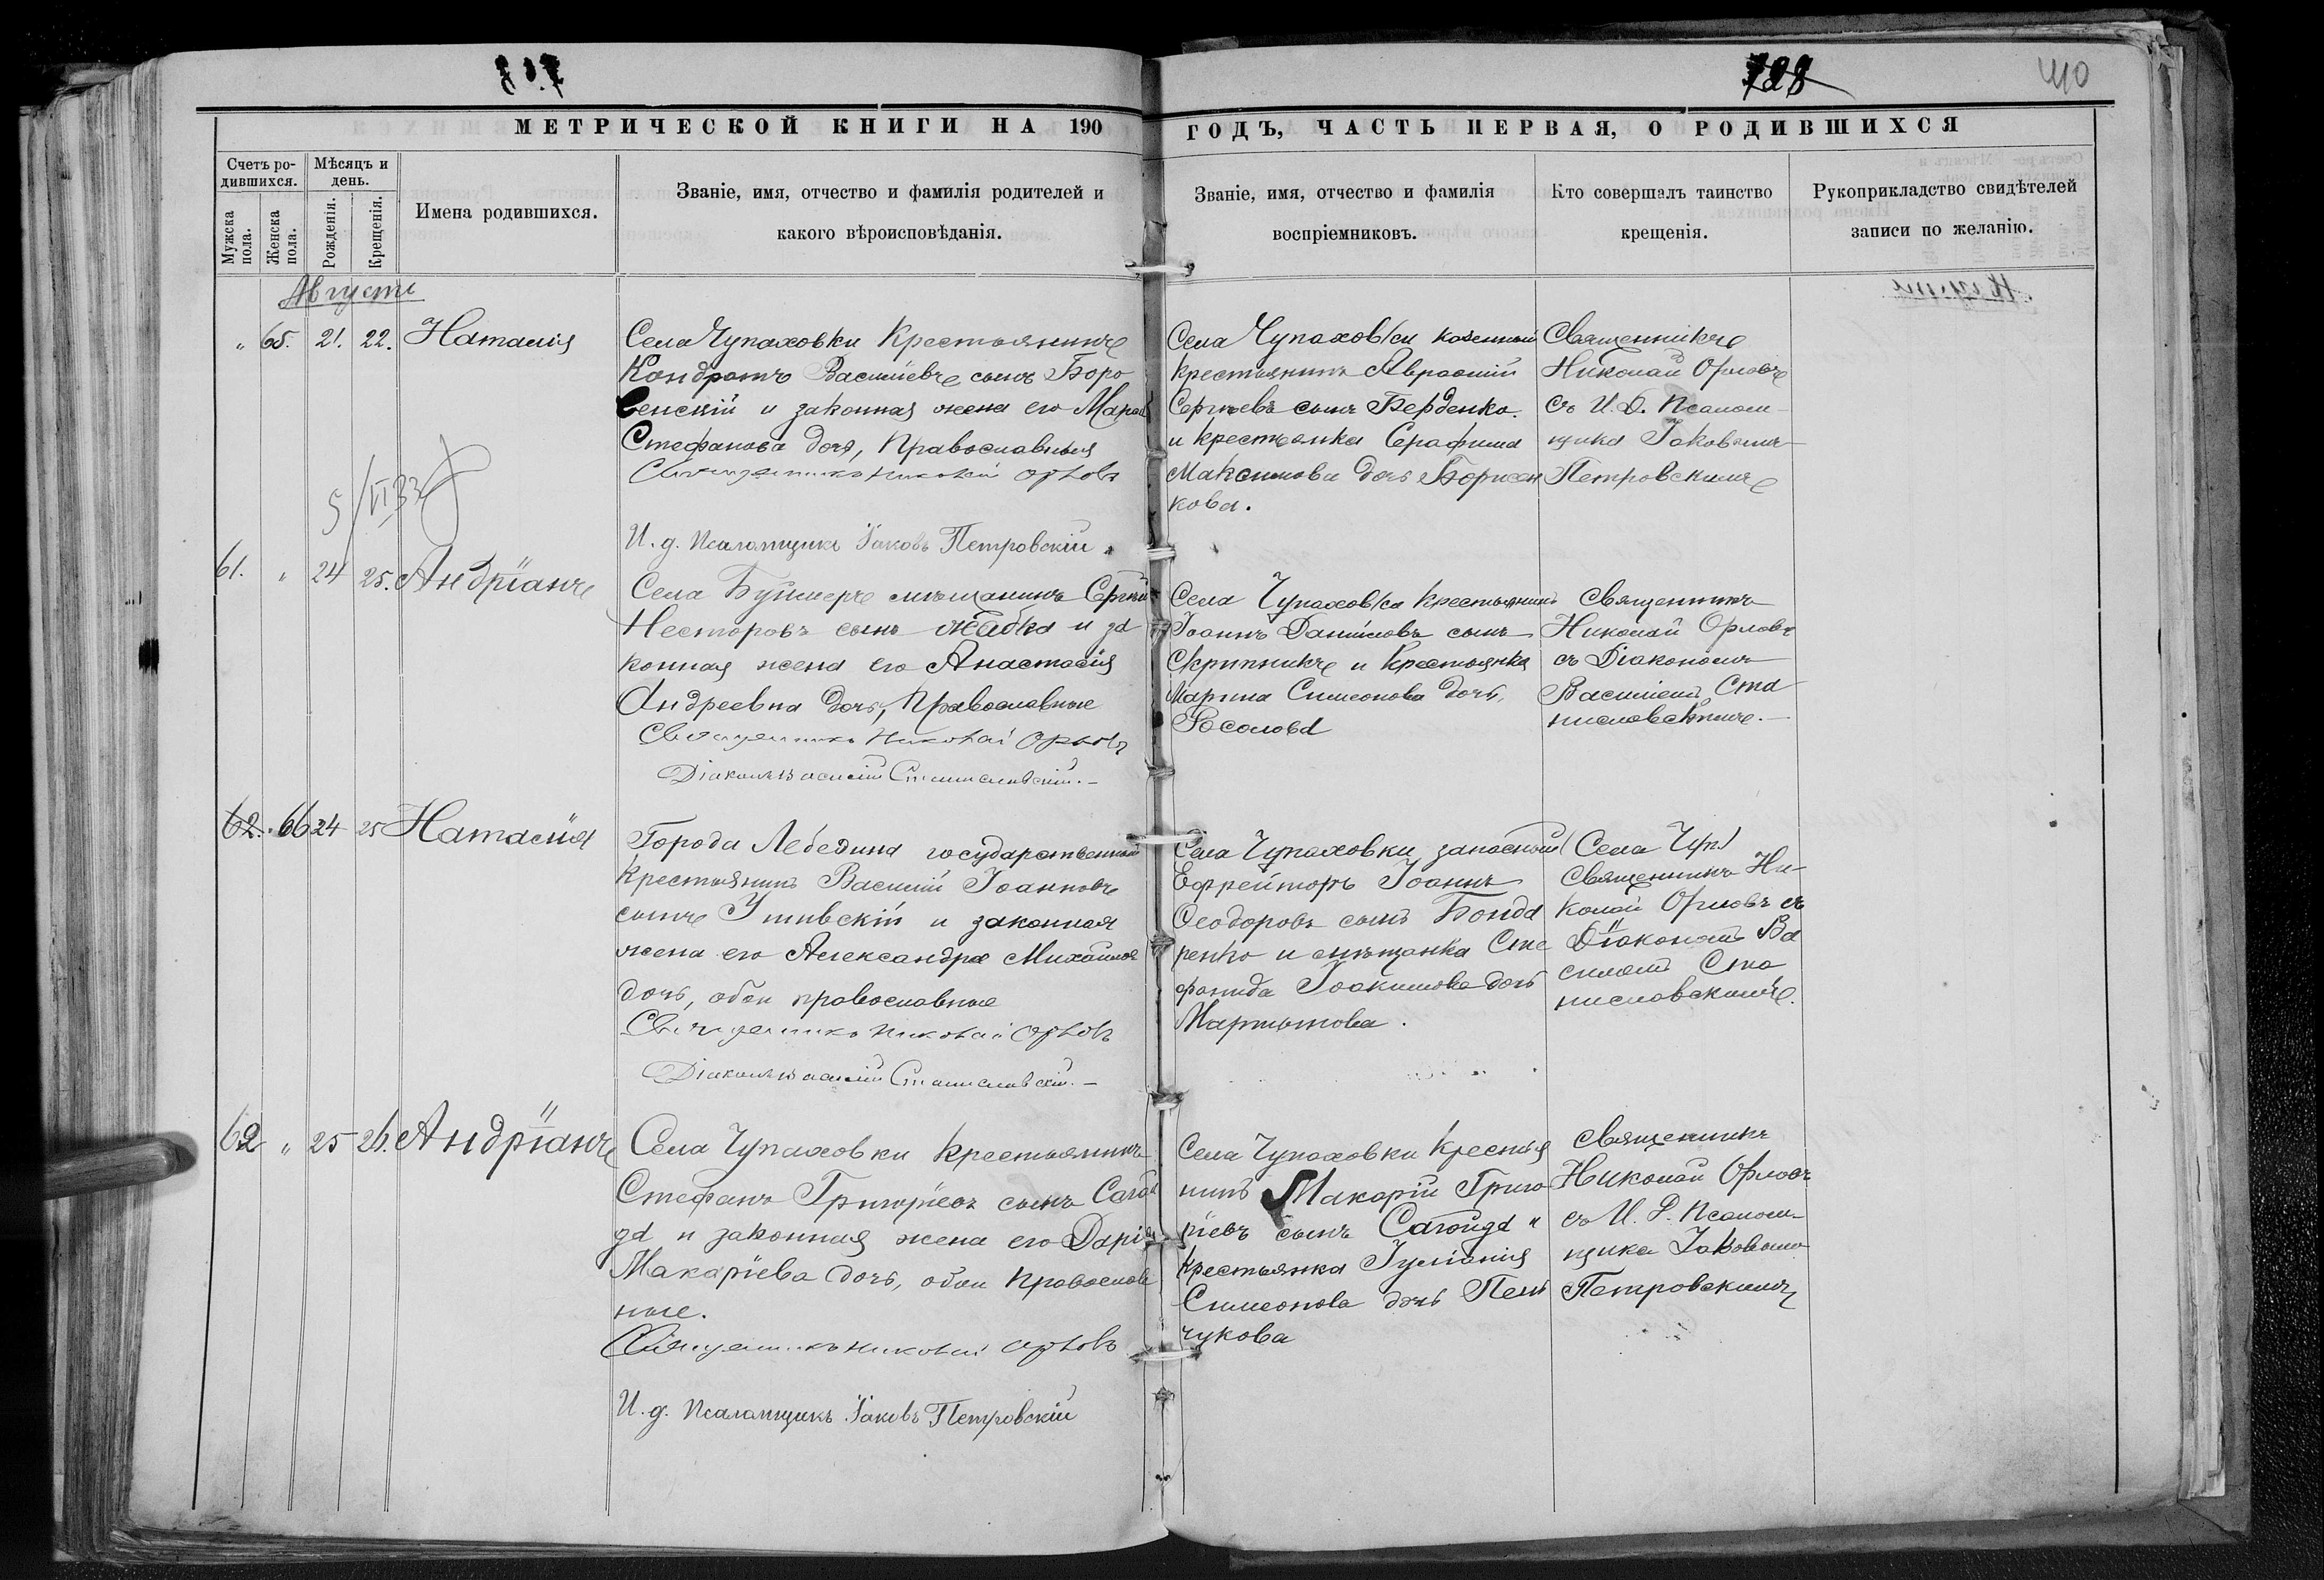 728
40
МЕТРИЧЕСКОЙ КНИГИ НА 190
ГОДЪ, ЧАСТЬ ПЕРВАЯ, О РОДИВШИХСЯ
Счетъ ро-
дившихся.
Мужска
пола.
Женска
пола.
Мѣсяцъ и
день.
Рожденія.
Крещенія.
Имена родившихся.
Званіе, имя, отчество и фамилія родителей и
какого вѣроисповѣданія.
Званіе, имя, отчество и фамилія
воспріемниковъ.
Кто совершалъ таинство
крещенія.
Рукоприкладство свидѣтелей
записи по желанію.
Августъ
" 65. 21. 22. Наталія
Села Чупаховки Крестьянинъ
Кондратъ Василіевъ сынъ Боро
венскій и законная жена его Марія
Стефанова дочь, Православныя
Священникъ Николай Орловъ
И. д. Псаломщикъ Іаковъ Петровскій.
Села Чупаховки казенный
крестьянинъ Авраамій
Сергѣевъ сынъ Берденко.
и крестьянка Серафима
Максимова дочь Борисен
кова.
Священникъ
Николай Орловъ
съ И. Д. Псалом-
щика Іаковомъ
Петровскимъ
5/VI 33
61. " 24 25. Андріанъ
Села Буймеръ мѣщанинъ Сергѣй
Несторовъ сынъ Жабка и за
конная жена его Анастасія
Андреевна дочь, Православные
Священникъ Николай Орловъ
Діаконъ Василій Станиславскій.-
Села Чупаховка Крестьянинъ
Іоаннъ Даніиловъ сынъ
Скрипникъ и Крестьянка
Марина Симеонова дочь
Косолова
Священникъ
Николай Орловъ
съ Діакономъ
Василіемъ Ста
ниславскимъ.-
62. 66 24 25 Наталія
Города Лебедина государственный
Крестьянинъ Василій Іоанновъ
сынъ и законная
жена его Александра Михайлова
дочь, обои православные
Священникъ Николай Орловъ
Діаконъ Василій Станиславскій.-
Села Чупаховки запасный
Ефрейторъ Іоаннъ
Ѳеодоровъ сынъ Бонда
ренко и мѣщанка Сте
фанида Іоакимова дочь
Мартынова.
Села Чуп
Священникъ Ни-
колай Орловъ съ
Діакономъ Ва
силіемъ Ста
ниславскимъ.
62 " 25 26. Андріанъ
Села Чупаховки Крестьянинъ
Стефанъ Григоріевъ сынъ Сагай
да и законная жена его Дарія
Макаріева дочь, обои Православ
ные.
Священникъ Николай Орловъ
И. д. Псаломщикъ Іаковъ Петровскій
Села Чупаховки Крестья
нинъ Макарій Григо
ріевъ сынъ Сагайда и
Крестьянка Іуліанія
Симеонова дочь
чукова
Священникъ
Николай Орловъ
съ И. Д. Псалом-
щика Іаковомъ
Петровскимъ